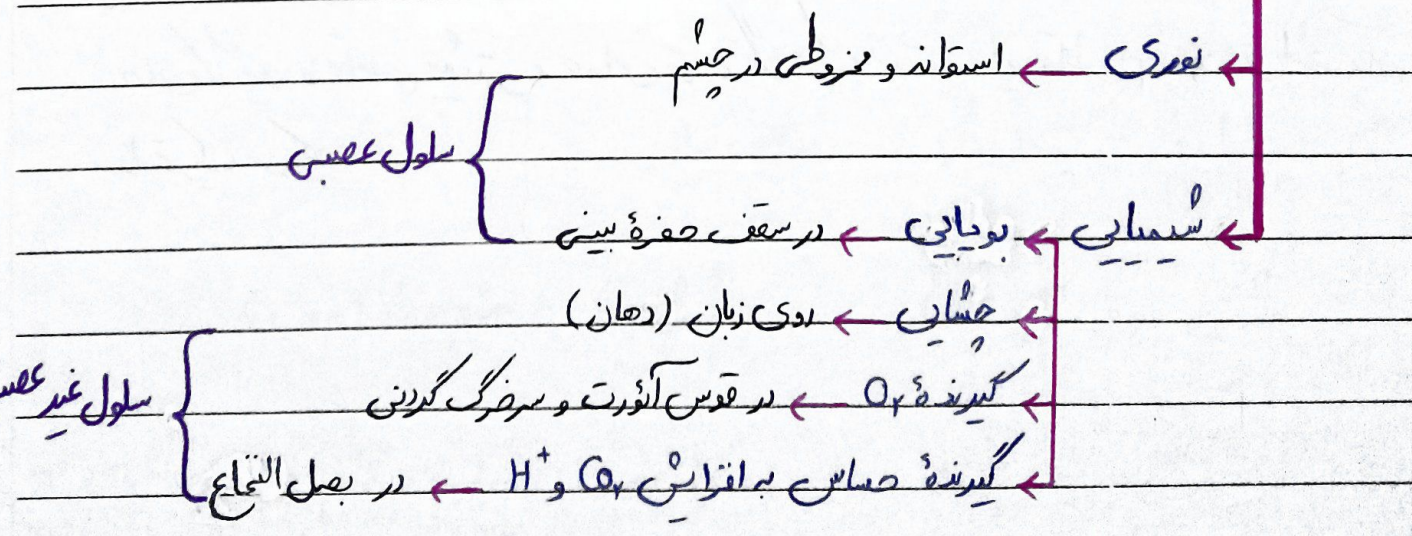 نوری ← استوانه و مخروطی در چشم
سلول عصبی
شیمیایی ← بویایی ← در سقف حفرهٔ بینی
چشایی ← روی زبان (دهان)
گیرندهٔ O₂ ← در قوس آئورت و سرخرگ گردنی
سلول غیر عصبی
گیرندهٔ حساس به افزایش CO₂ و H⁺ ← در بصل النخاع